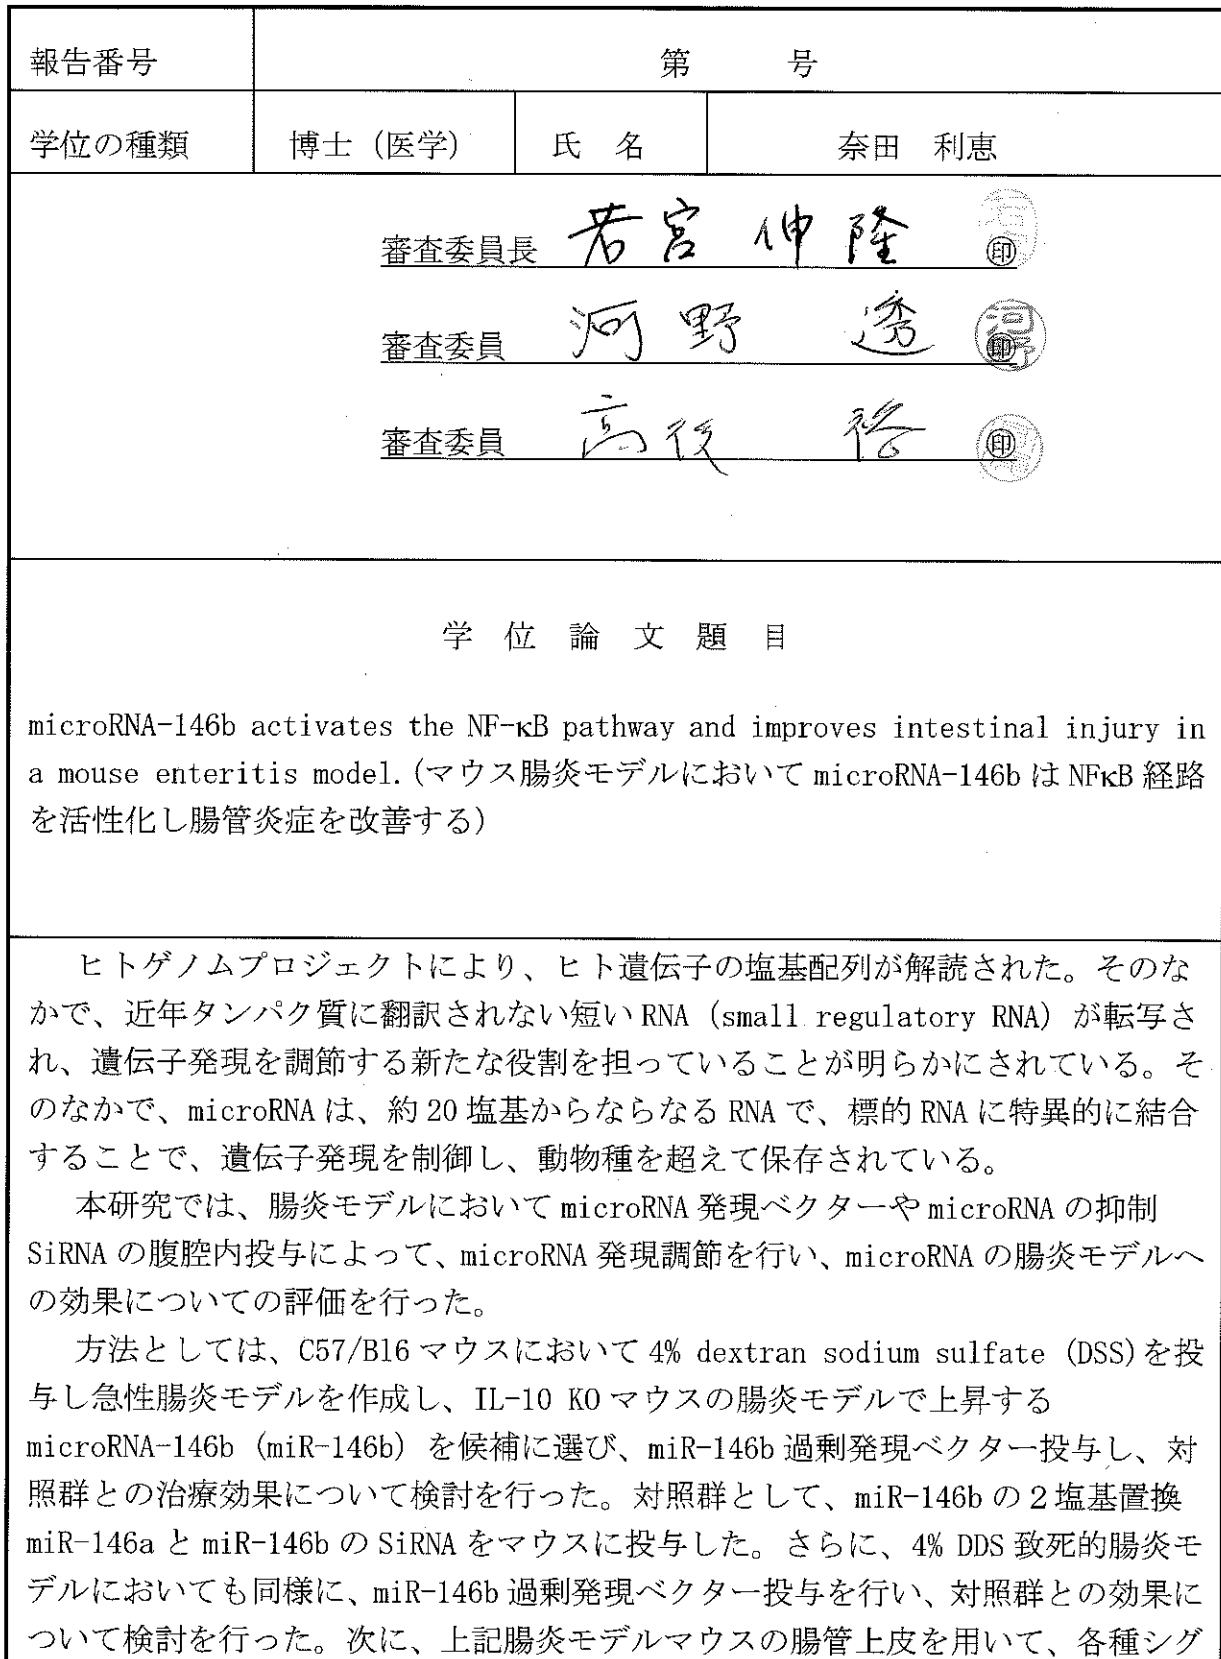 報告番号 第 号
学位の種類 博士（医学） 氏 名 奈田 利恵
審査委員長 若宮 伸隆 ㊞
審査委員 河野 透 ㊞
審査委員 高後 裕 ㊞
学 位 論 文 題 目
microRNA-146b activates the NF-κB pathway and improves intestinal injury in
a mouse enteritis model.(マウス腸炎モデルにおいて microRNA-146b は NFκB 経路
を活性化し腸管炎症を改善する)
ヒトゲノムプロジェクトにより、ヒト遺伝子の塩基配列が解読された。そのな
かで、近年タンパク質に翻訳されない短い RNA（small regulatory RNA）が転写さ
れ、遺伝子発現を調節する新たな役割を担っていることが明らかにされている。そ
のなかで、microRNA は、約 20 塩基からならなる RNA で、標的 RNA に特異的に結合
することで、遺伝子発現を制御し、動物種を超えて保存されている。
本研究では、腸炎モデルにおいて microRNA 発現ベクターや microRNA の抑制
SiRNA の腹腔内投与によって、microRNA 発現調節を行い、microRNA の腸炎モデルへ
の効果についての評価を行った。
方法としては、C57/Bl6 マウスにおいて 4% dextran sodium sulfate (DSS)を投
与し急性腸炎モデルを作成し、IL-10 KO マウスの腸炎モデルで上昇する
microRNA-146b（miR-146b）を候補に選び、miR-146b 過剰発現ベクター投与し、対
照群との治療効果について検討を行った。対照群として、miR-146b の２塩基置換
miR-146a と miR-146b の SiRNA をマウスに投与した。さらに、4% DDS 致死的腸炎モ
デルにおいても同様に、miR-146b 過剰発現ベクター投与を行い、対照群との効果に
ついて検討を行った。次に、上記腸炎モデルマウスの腸管上皮を用いて、各種シグ